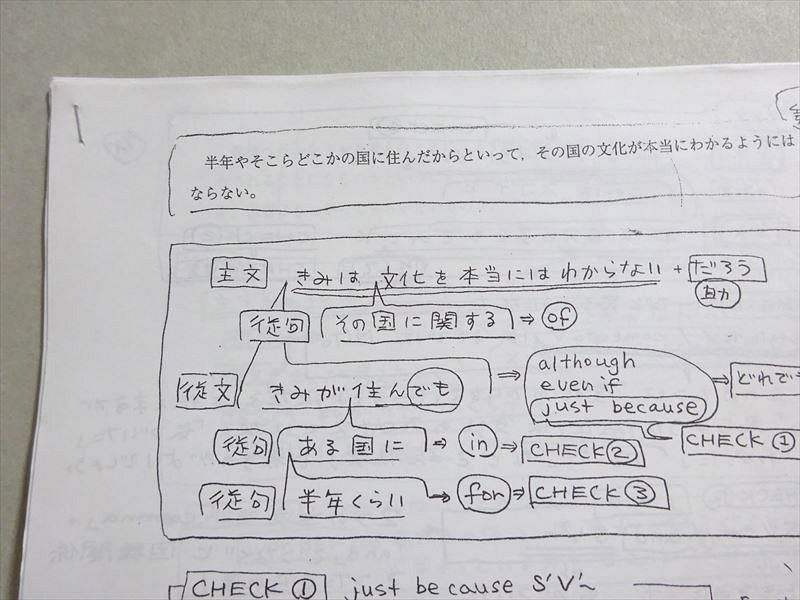 半年やそこらどこかの国に住んだからといって，その国の文化が本当にわかるようには
ならない。
主文 きみは 文化を 本当にはわからない + だろう
助
従句 その国に関する ⇒ of
従文 きみが住んでも ⇒ although
even if
just because
⇒ どれでも
CHECK①
従句 ある国に ⇒ in ⇒ CHECK②
従句 半年くらい → for ⇒ CHECK③
CHECK① just because S'V'~